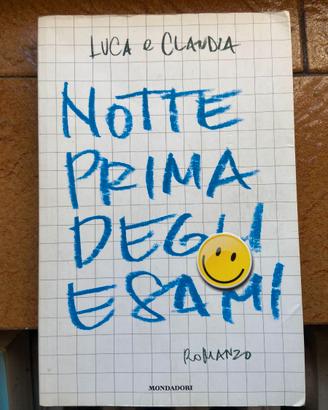 LUCA e CLAUDIA
NOTTE
PRIMA
DEGLI
ESAMI
ROMANZO
MONDADORI